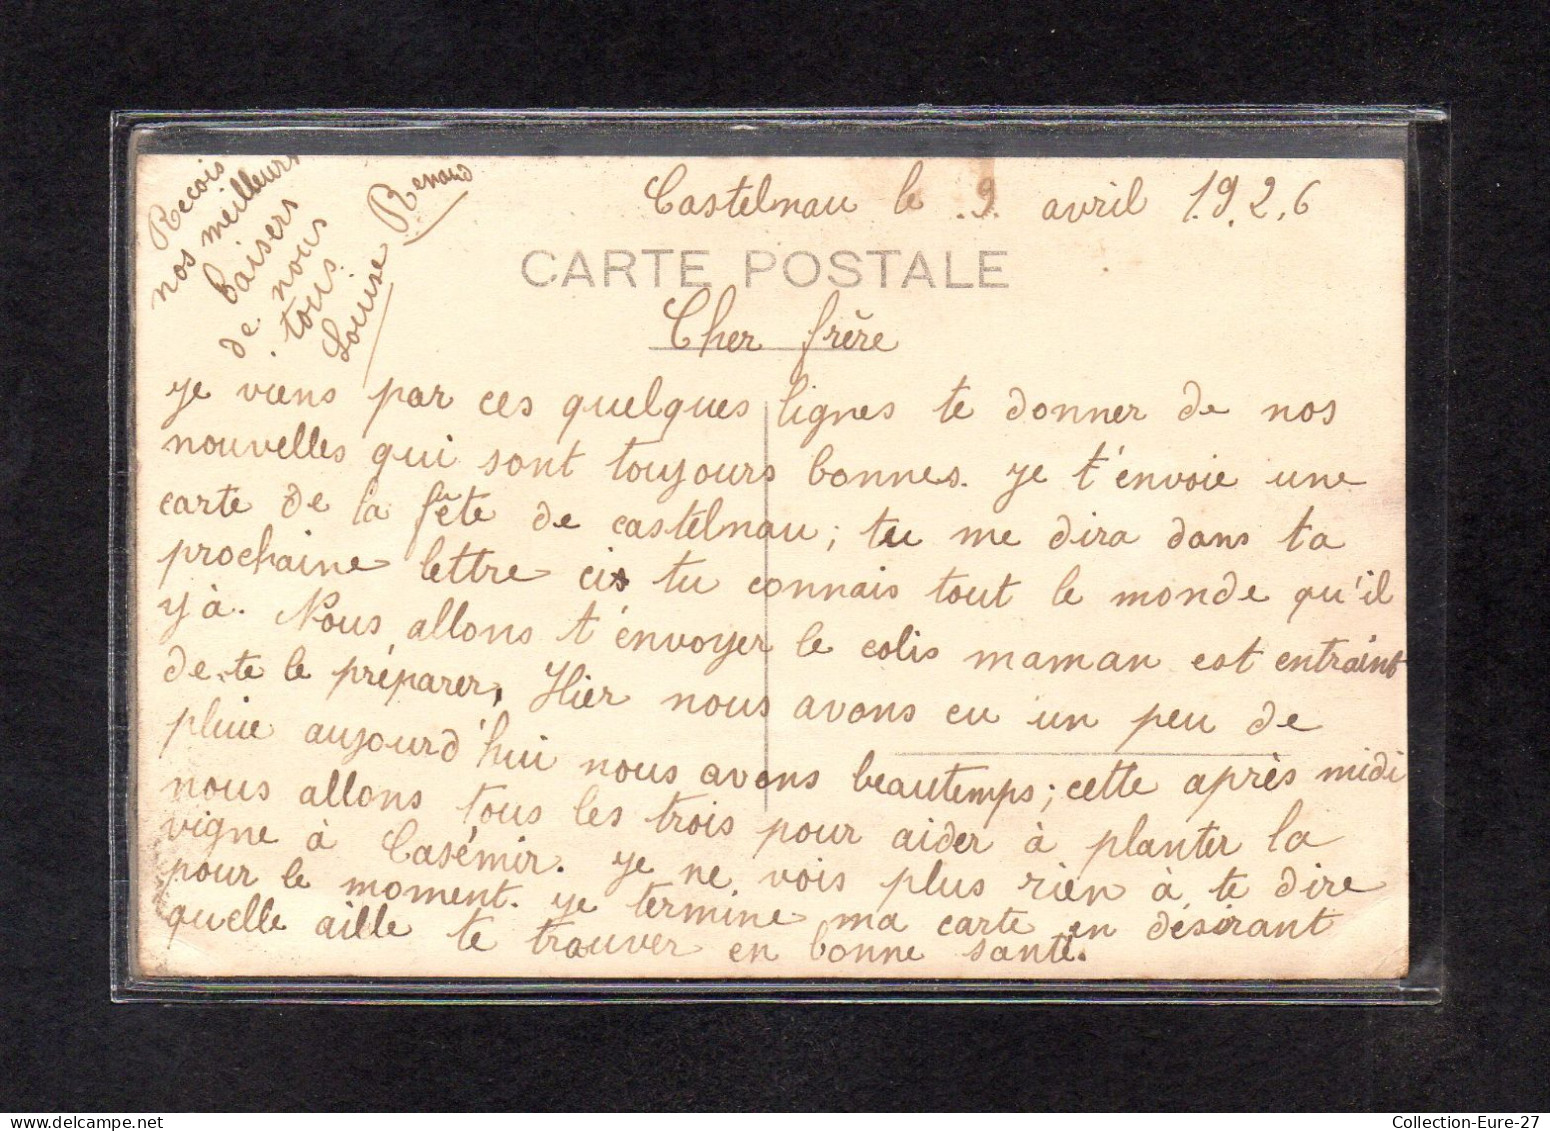 Castelnau le 9 avril 1926
CARTE POSTALE
Cher frère
je viens par ces quelques lignes te donner de nos
nouvelles qui sont toujours bonnes. je t'envoie une
carte de la fête de castelnau ; tu me dira dans ta
prochaine lettre cis tu connais tout le monde qu'il
y à. Nous allons t'envoyer le colis maman est entraint
de te le préparer, Hier nous avons eu un peu de
pluie aujourd'hui nous avons beautemps ; cette après midi
nous allons tous les trois pour aider à planter la
vigne à Casémir. je ne vois plus rien à te dire
pour le moment. je termine ma carte en désirant
quelle aille te trouver en bonne santé.
Recois
nos meilleurs
baisers
de nous
tous.
Louise Renaud
Collection-Eure-27